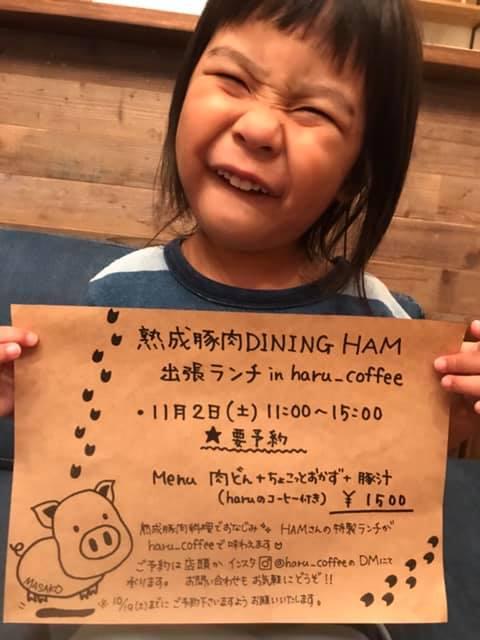 熟成豚肉DINING HAM
出張ランチ in haru_coffee
・11月2日(土) 11:00〜15:00
★要予約
Menu 肉どん+ちょこっとおかず+豚汁
(haruのコーヒー付き) ¥1500
熟成豚肉料理でおなじみ HAMさんの特製ランチが
haru_coffeeで味わえます
ご予約は店頭か インスタ @haru_coffeeの DMにて
承ります。 お問い合わせも お気軽にどうぞ!!
※ 10/19(土)までに ご予約下さいますよう お願いいたします。
MASAKO